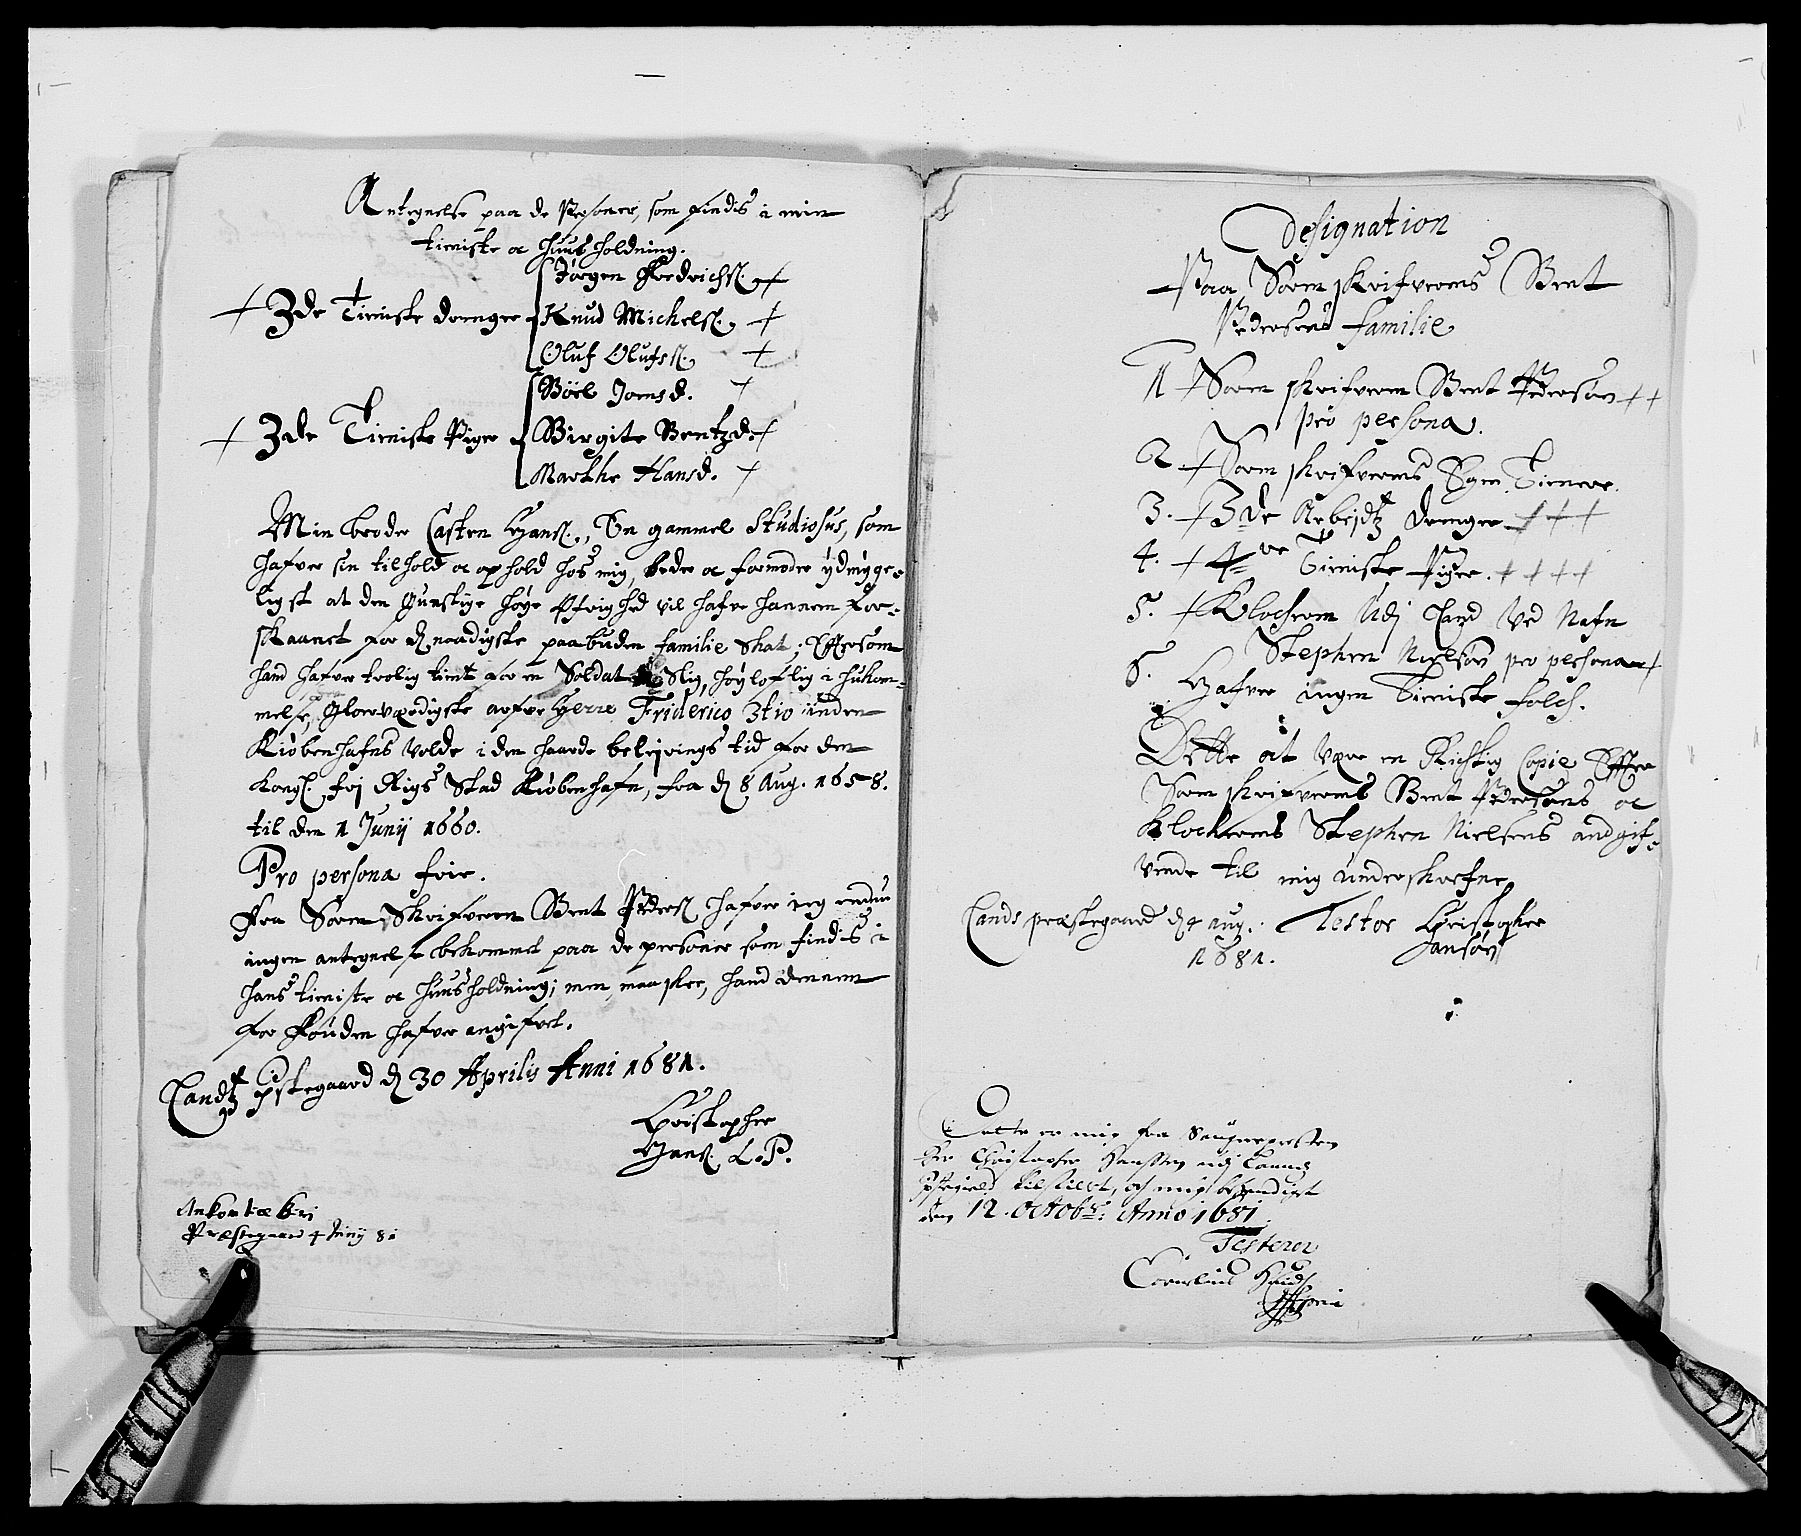 Antegnelse paa de Personer, som findis i min
tieniste oc Huusholdning.
Jørgen Fredrichs. +
+ 3de Tieniste drenge Knud Michels. +
Oluf Olufss. +
Böel Joensd. +
+ 3de Tieniste Piger Birgite Bentzd. +
Marthe Hansd. +
Min broder Casten Hans., En gammel Studiosus, som
hafver sin tilhold oc ophold hos mig, beder oc formoder ydmyge-
ligst at den Gunstige høye Øfrighed vil hafve hannem for-
skaanet for d. naadigste paabuden familie Skat; Efftersom
hand hafver trolig tient for en Soldat Slig, høyloflig i hukom-
melse, Glorværdigste arfve Herre Friderico 3tio inden
Kiøbenhafns Volde i den haarde beleirings tid for den
Kongl. frj Rigs Stad Kiøbenhafn, fra d. 8 Aug. 1658.
til den 1 Junij 1660.
Pro persona frie.
Fra Sorenskrifveren Bent Peders. hafver ieg endnu
ingen antegnelse bekommet paa de personer som findis i
hans tieniste oc Huusholdning; men maaskee, hand dennem
for Fouden hafver angifvet.
Landtz Pstegaard d. 30 Aprilis Anni 1681.
Christopher
Hans. L.P.
Ankom
Præstegaard 4 Junij 81
Designation
Paa Sorenskrifverens Bent
Pedersens familie
1 + Sorenskrifveren Bent Pedersøn ++
pro persona.
2 + Sorenskrifverens Egen Tienere.
3. + 3de Arbejdtz drenge +++
4. + 4re Tieniste Piger. ++++
5. + Klockeren Udj Land Ved Nafn
Stephen Nielsøn pro persona +
6. Hafver ingen Tieniste folch.
Dette at være en Richtig Copie Effter
Sorenskrifverens Bent Pedersøns oc
Klockerens Stephen Nielsens andgif-
vende til mig underskrefne
Lands præstegaard d. 4 Aug. Testor Christopher
1681. Jansøn
Dette er mig fra Sougnepresten
Her Christopher Hanssen udj Lannds
Pstegield tilstillet, och mig behendiget
den 12. Octobr: Anno 1681
Testerer
Cornelius